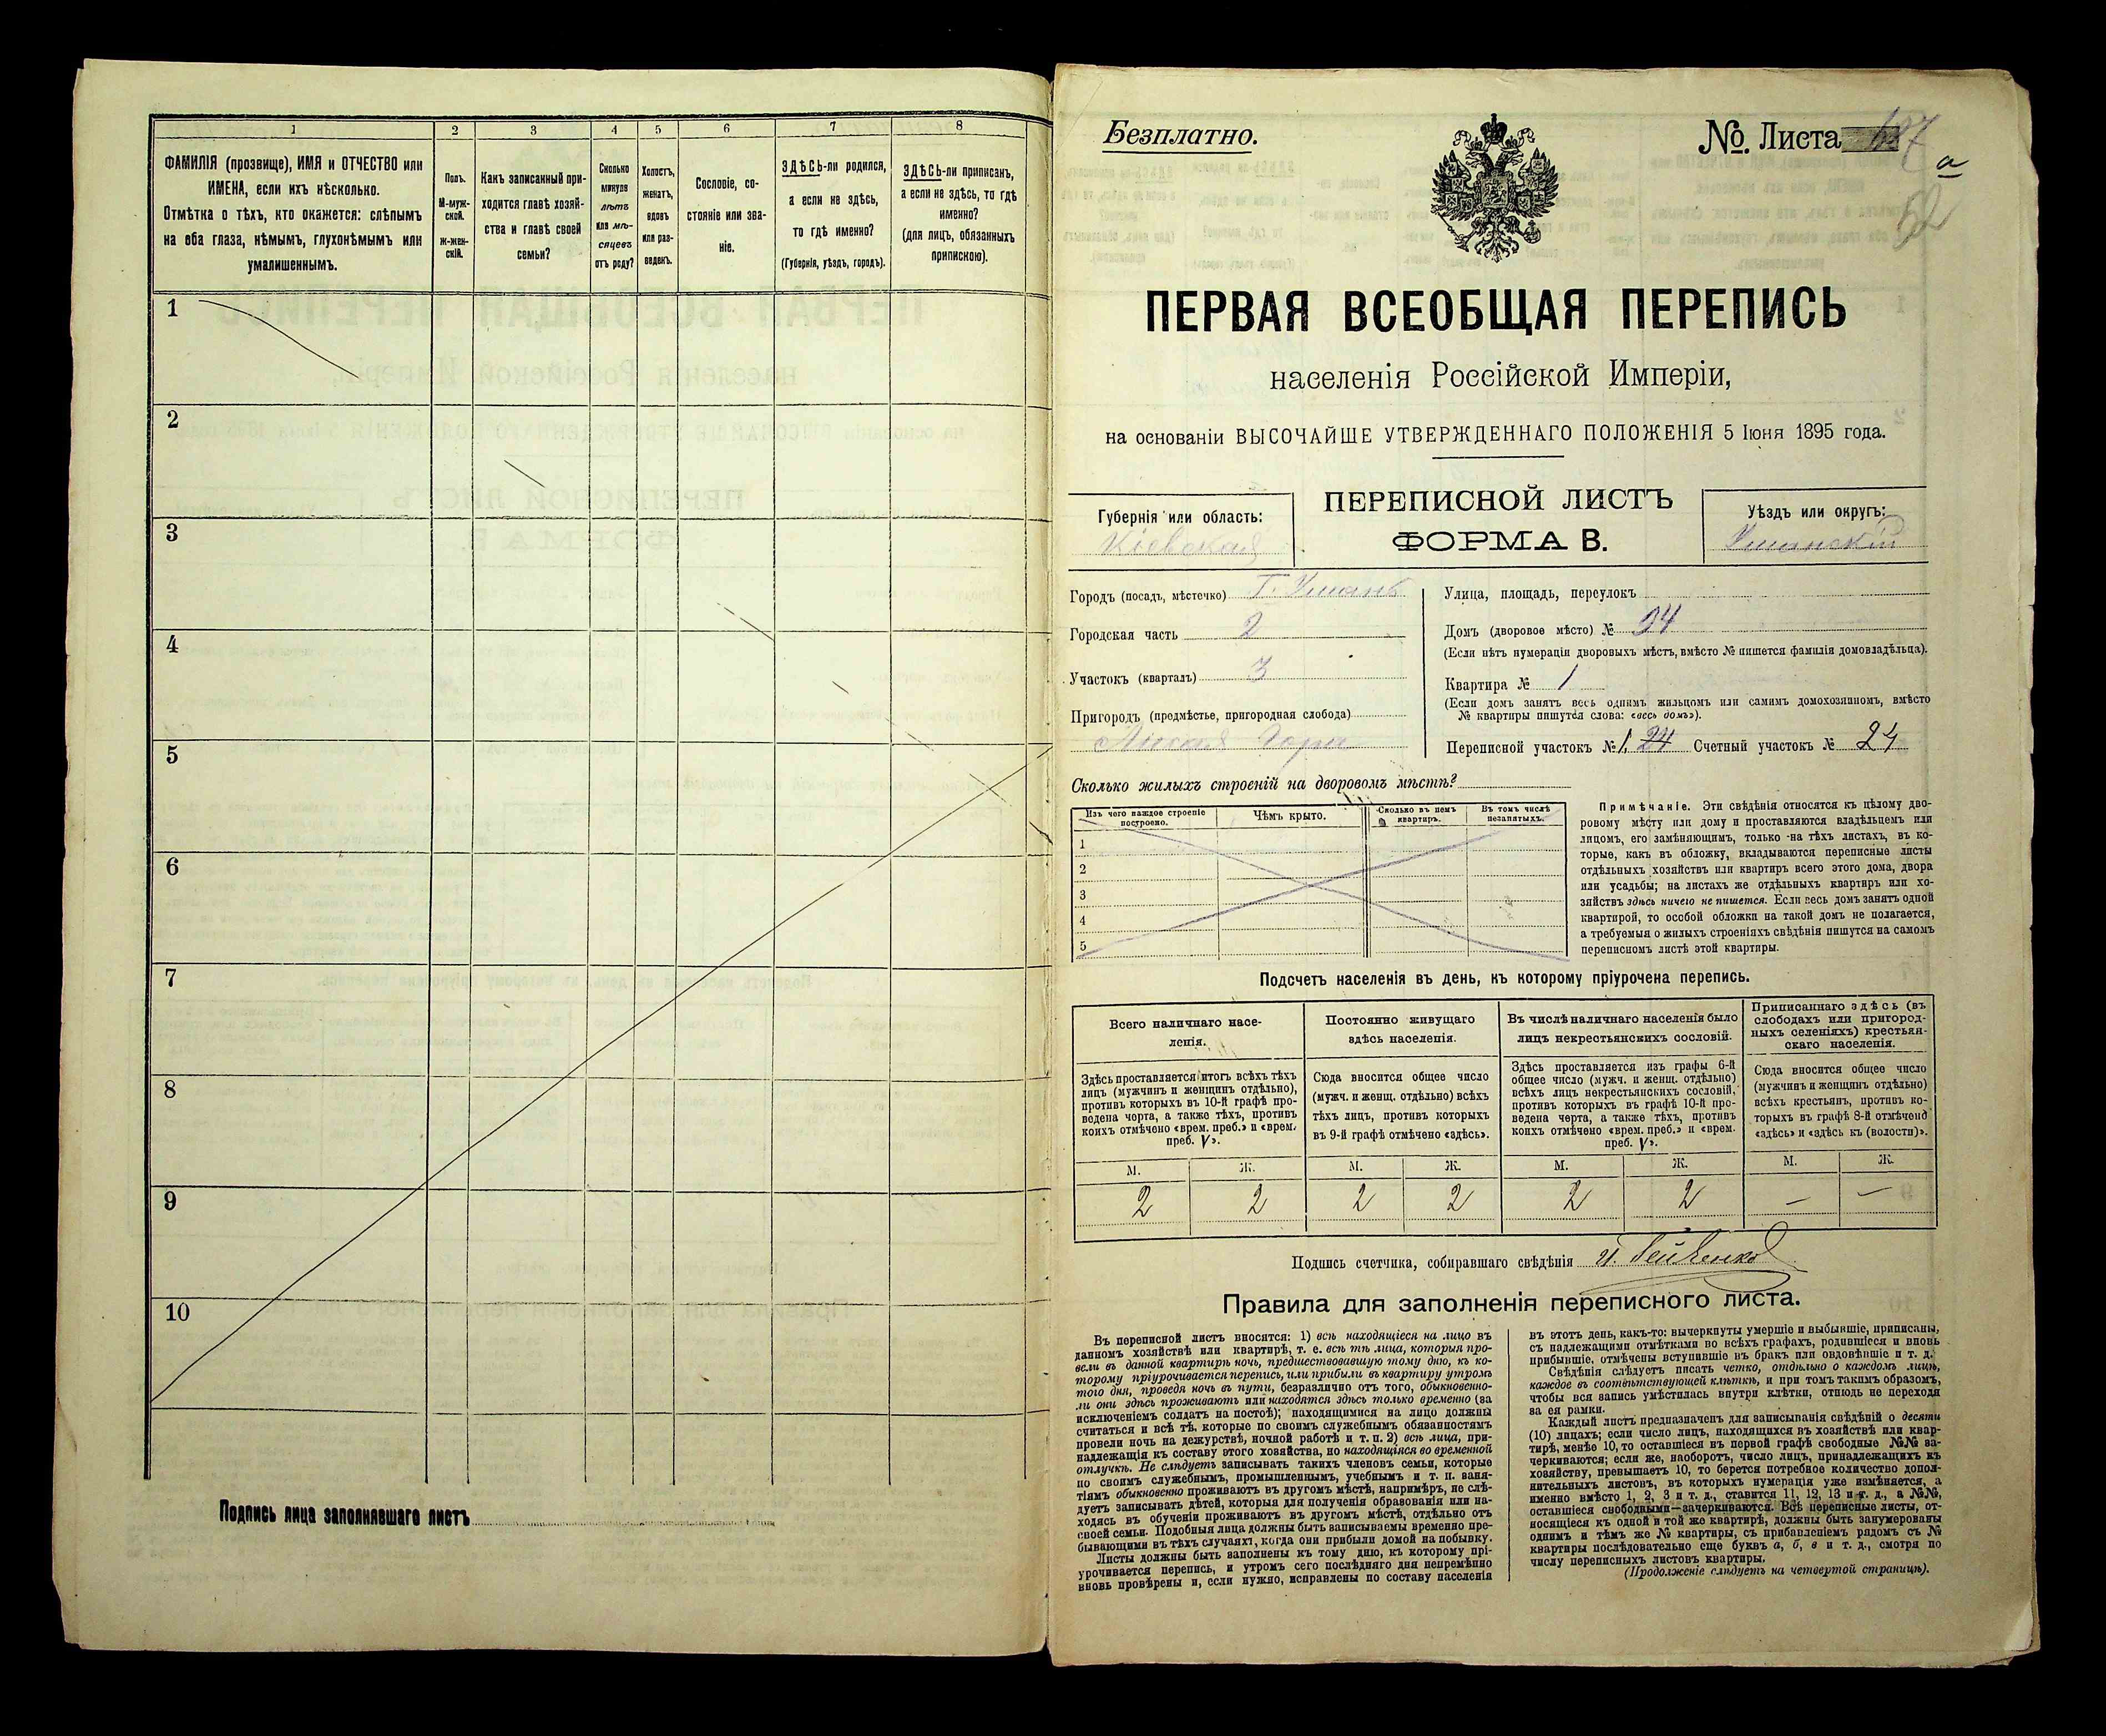 1 2 3 4 5 6 7 8
ФАМИЛІЯ (прозвище), ИМЯ и ОТЧЕСТВО или
ИМЕНА, если ихъ нѣсколько.
Отмѣтка о тѣхъ, кто окажется: слѣпымъ
на оба глаза, нѣмымъ, глухонѣмымъ или
умалишеннымъ.
Полъ.
М-муж-
ской.
Ж-жен-
скій.
Какъ записанный при-
ходится главѣ хозяй-
ства и главѣ своей
семьи?
Сколько
минуло
лѣтъ
или мѣ-
сяцевъ
отъ роду?
Холостъ,
женатъ,
вдовъ
или раз-
веденъ.
Сословіе, со-
стояніе или зва-
ніе.
ЗДѢСЬ-ли родился,
а если не здѣсь,
то гдѣ именно?
(Губернія, уѣздъ, городъ).
ЗДѢСЬ-ли приписанъ,
а если не здѣсь, то гдѣ
именно?
(для лицъ, обязанныхъ
припискою).
1
2
3
4
5
6
7
8
9
10
Подпись лица заполнявшаго листъ
Безплатно.
№ Листа
а
ПЕРВАЯ ВСЕОБЩАЯ ПЕРЕПИСЬ
населенія Россійской Имперіи,
на основаніи ВЫСОЧАЙШЕ УТВЕРЖДЕННАГО ПОЛОЖЕНІЯ 5 Іюня 1895 года.
Губернія или область:
Кіевская
ПЕРЕПИСНОЙ ЛИСТЪ
ФОРМА В.
Уѣздъ или округъ:
Уманскій
Городъ (посадъ, мѣстечко) Г. Умань
Городская часть 2
Участокъ (кварталъ) 3
Пригородъ (предмѣстье, пригородная слобода)
Лысая Гора
Улица, площадь, переулокъ
Домъ (дворовое мѣсто) № 34
(Если нѣтъ нумераціи дворовыхъ мѣстъ, вмѣсто № пишется фамилія домовладѣльца).
Квартира № 1
(Если домъ занятъ весь однимъ жильцомъ или самимъ домохозяиномъ, вмѣсто
№ квартиры пишутся слова: «весь домъ»).
Переписной участокъ № 1, 24 Счетный участокъ № 24
Сколько жилыхъ строеній на дворовомъ мѣстѣ?
Изъ чего каждое строеніе
построено.
Чѣмъ крыто.
Сколько въ немъ
квартиръ.
Въ томъ числѣ
незанятыхъ.
1
2
3
4
5
Примѣчаніе. Эти свѣдѣнія относятся къ цѣлому дво-
ровому мѣсту или дому и проставляются владѣльцемъ или
лицомъ, его замѣняющимъ, только на тѣхъ листахъ, въ ко-
торые, какъ въ обложку, вкладываются переписные листы
отдѣльныхъ хозяйствъ или квартиръ всего этого дома, двора
или усадьбы; на листахъ же отдѣльныхъ квартиръ или хо-
зяйствъ здѣсь ничего не пишется. Если весь домъ занятъ одной
квартирой, то особой обложки на такой домъ не полагается,
а требуемыя о жилыхъ строеніяхъ свѣдѣнія пишутся на самомъ
переписномъ листѣ этой квартиры.
Подсчетъ населенія въ день, къ которому пріурочена перепись.
Всего наличнаго насе-
ленія.
Постоянно живущаго
здѣсь населенія.
Въ числѣ наличнаго населенія было
лицъ некрестьянскихъ сословій.
Приписаннаго здѣсь (въ
слободахъ или пригород-
ныхъ селеніяхъ) крестьян-
скаго населенія.
Здѣсь проставляется итогъ всѣхъ тѣхъ
лицъ (мужчинъ и женщинъ отдѣльно),
противъ которыхъ въ 10-й графѣ про-
ведена черта, а также тѣхъ, противъ
коихъ отмѣчено «врем. преб.» и «врем.
преб. V».
Сюда вносится общее число
(мужч. и женщ. отдѣльно) всѣхъ
тѣхъ лицъ, противъ которыхъ
въ 9-й графѣ отмѣчено «здѣсь».
Здѣсь проставляется изъ графы 6-й
общее число (мужч. и женщ. отдѣльно)
всѣхъ лицъ некрестьянскихъ сословій,
противъ которыхъ въ графѣ 10-й про-
ведена черта, а также тѣхъ, противъ
коихъ отмѣчено «врем. преб.» и «врем.
преб. V».
Сюда вносится общее число
(мужчинъ и женщинъ отдѣльно)
всѣхъ крестьянъ, противъ ко-
торыхъ въ графѣ 8-й отмѣчено
«здѣсь» и «здѣсь къ (волости)».
М. Ж. М. Ж. М. Ж. М. Ж.
2 2 2 2 2 2 — —
Подпись счетчика, собиравшаго свѣдѣнія
Правила для заполненія переписного листа.
Въ переписной листъ вносятся: 1) всѣ находящіеся на лицо въ
данномъ хозяйствѣ или квартирѣ, т. е. всѣ тѣ лица, которыя про-
вели въ данной квартирѣ ночь, предшествовавшую тому дню, къ ко-
торому пріурочивается перепись, или прибыли въ квартиру утромъ
того дня, проведя ночь въ пути, безразлично отъ того, обыкновенно-
ли они здѣсь проживаютъ или находятся здѣсь только временно (за
исключеніемъ солдатъ на постоѣ); находящимися на лицо должны
считаться и всѣ тѣ, которые по своимъ служебнымъ обязанностямъ
провели ночь на дежурствѣ, ночной работѣ и т. п. 2) всѣ лица, при-
надлежащія къ составу этого хозяйства, но находящіяся во временной
отлучкѣ. Не слѣдуетъ записывать такихъ членовъ семьи, которые
по своимъ служебнымъ, промышленнымъ, учебнымъ и т. п. заня-
тіямъ обыкновенно проживаютъ въ другомъ мѣстѣ, напримѣръ, не слѣ-
дуетъ записывать дѣтей, которыя для полученія образованія или на-
ходясь въ обученіи проживаютъ въ другомъ мѣстѣ, отдѣльно отъ
своей семьи. Подобныя лица должны быть записываемы временно пре-
бывающими въ тѣхъ случаяхъ, когда они прибыли домой на побывку.
Листы должны быть заполнены къ тому дню, къ которому прі-
урочивается перепись, и утромъ сего послѣдняго дня непремѣнно
вновь провѣрены и, если нужно, исправлены по составу населенія
въ этотъ день, какъ-то: вычеркнуты умершіе и выбывшіе, приписаны,
съ надлежащими отмѣтками во всѣхъ графахъ, родившіеся и вновь
прибывшіе, отмѣчены вступившіе въ бракъ или овдовѣвшіе и т. д.
Свѣдѣнія слѣдуетъ писать четко, отдѣльно о каждомъ лицѣ,
каждое въ соотвѣтствующей клѣткѣ, и при томъ такимъ образомъ,
чтобы вся запись умѣстилась внутри клѣтки, отнюдь не переходя
за ея рамки.
Каждый листъ предназначенъ для записыванія свѣдѣній о десяти
(10) лицахъ; если число лицъ, находящихся въ хозяйствѣ или квар-
тирѣ, менѣе 10, то оставшіеся въ первой графѣ свободные №№ за-
черкиваются; если же, наоборотъ, число лицъ, принадлежащихъ къ
хозяйству, превышаетъ 10, то берется потребное количество допол-
нительныхъ листовъ, въ которыхъ нумерація уже измѣняется, а
именно вмѣсто 1, 2, 3 и т. д., ставится 11, 12, 13 и т. д., а №№,
оставшіеся свободными—зачеркиваются. Всѣ переписные листы, от-
носящіеся къ одной и той же квартирѣ, должны быть занумерованы
однимъ и тѣмъ же № квартиры, съ прибавленіемъ рядомъ съ №
квартиры послѣдовательно еще буквъ а, б, в и т. д., смотря по
числу переписныхъ листовъ квартиры.
(Продолженіе слѣдуетъ на четвертой страницѣ).